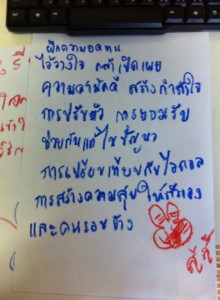 ฝึกความอดทน
ไว้วางใจ กล้าเปิดเผย
ความสามัคคี สร้างกำลังใจ
การปรับตัว การยอมรับ
ช่วยกันแก้ไขปัญหา
การเปรียบเทียบกับไอดอล
การสร้างความสุขให้ตัวเอง
และคนรอบข้าง
สู้ สู้